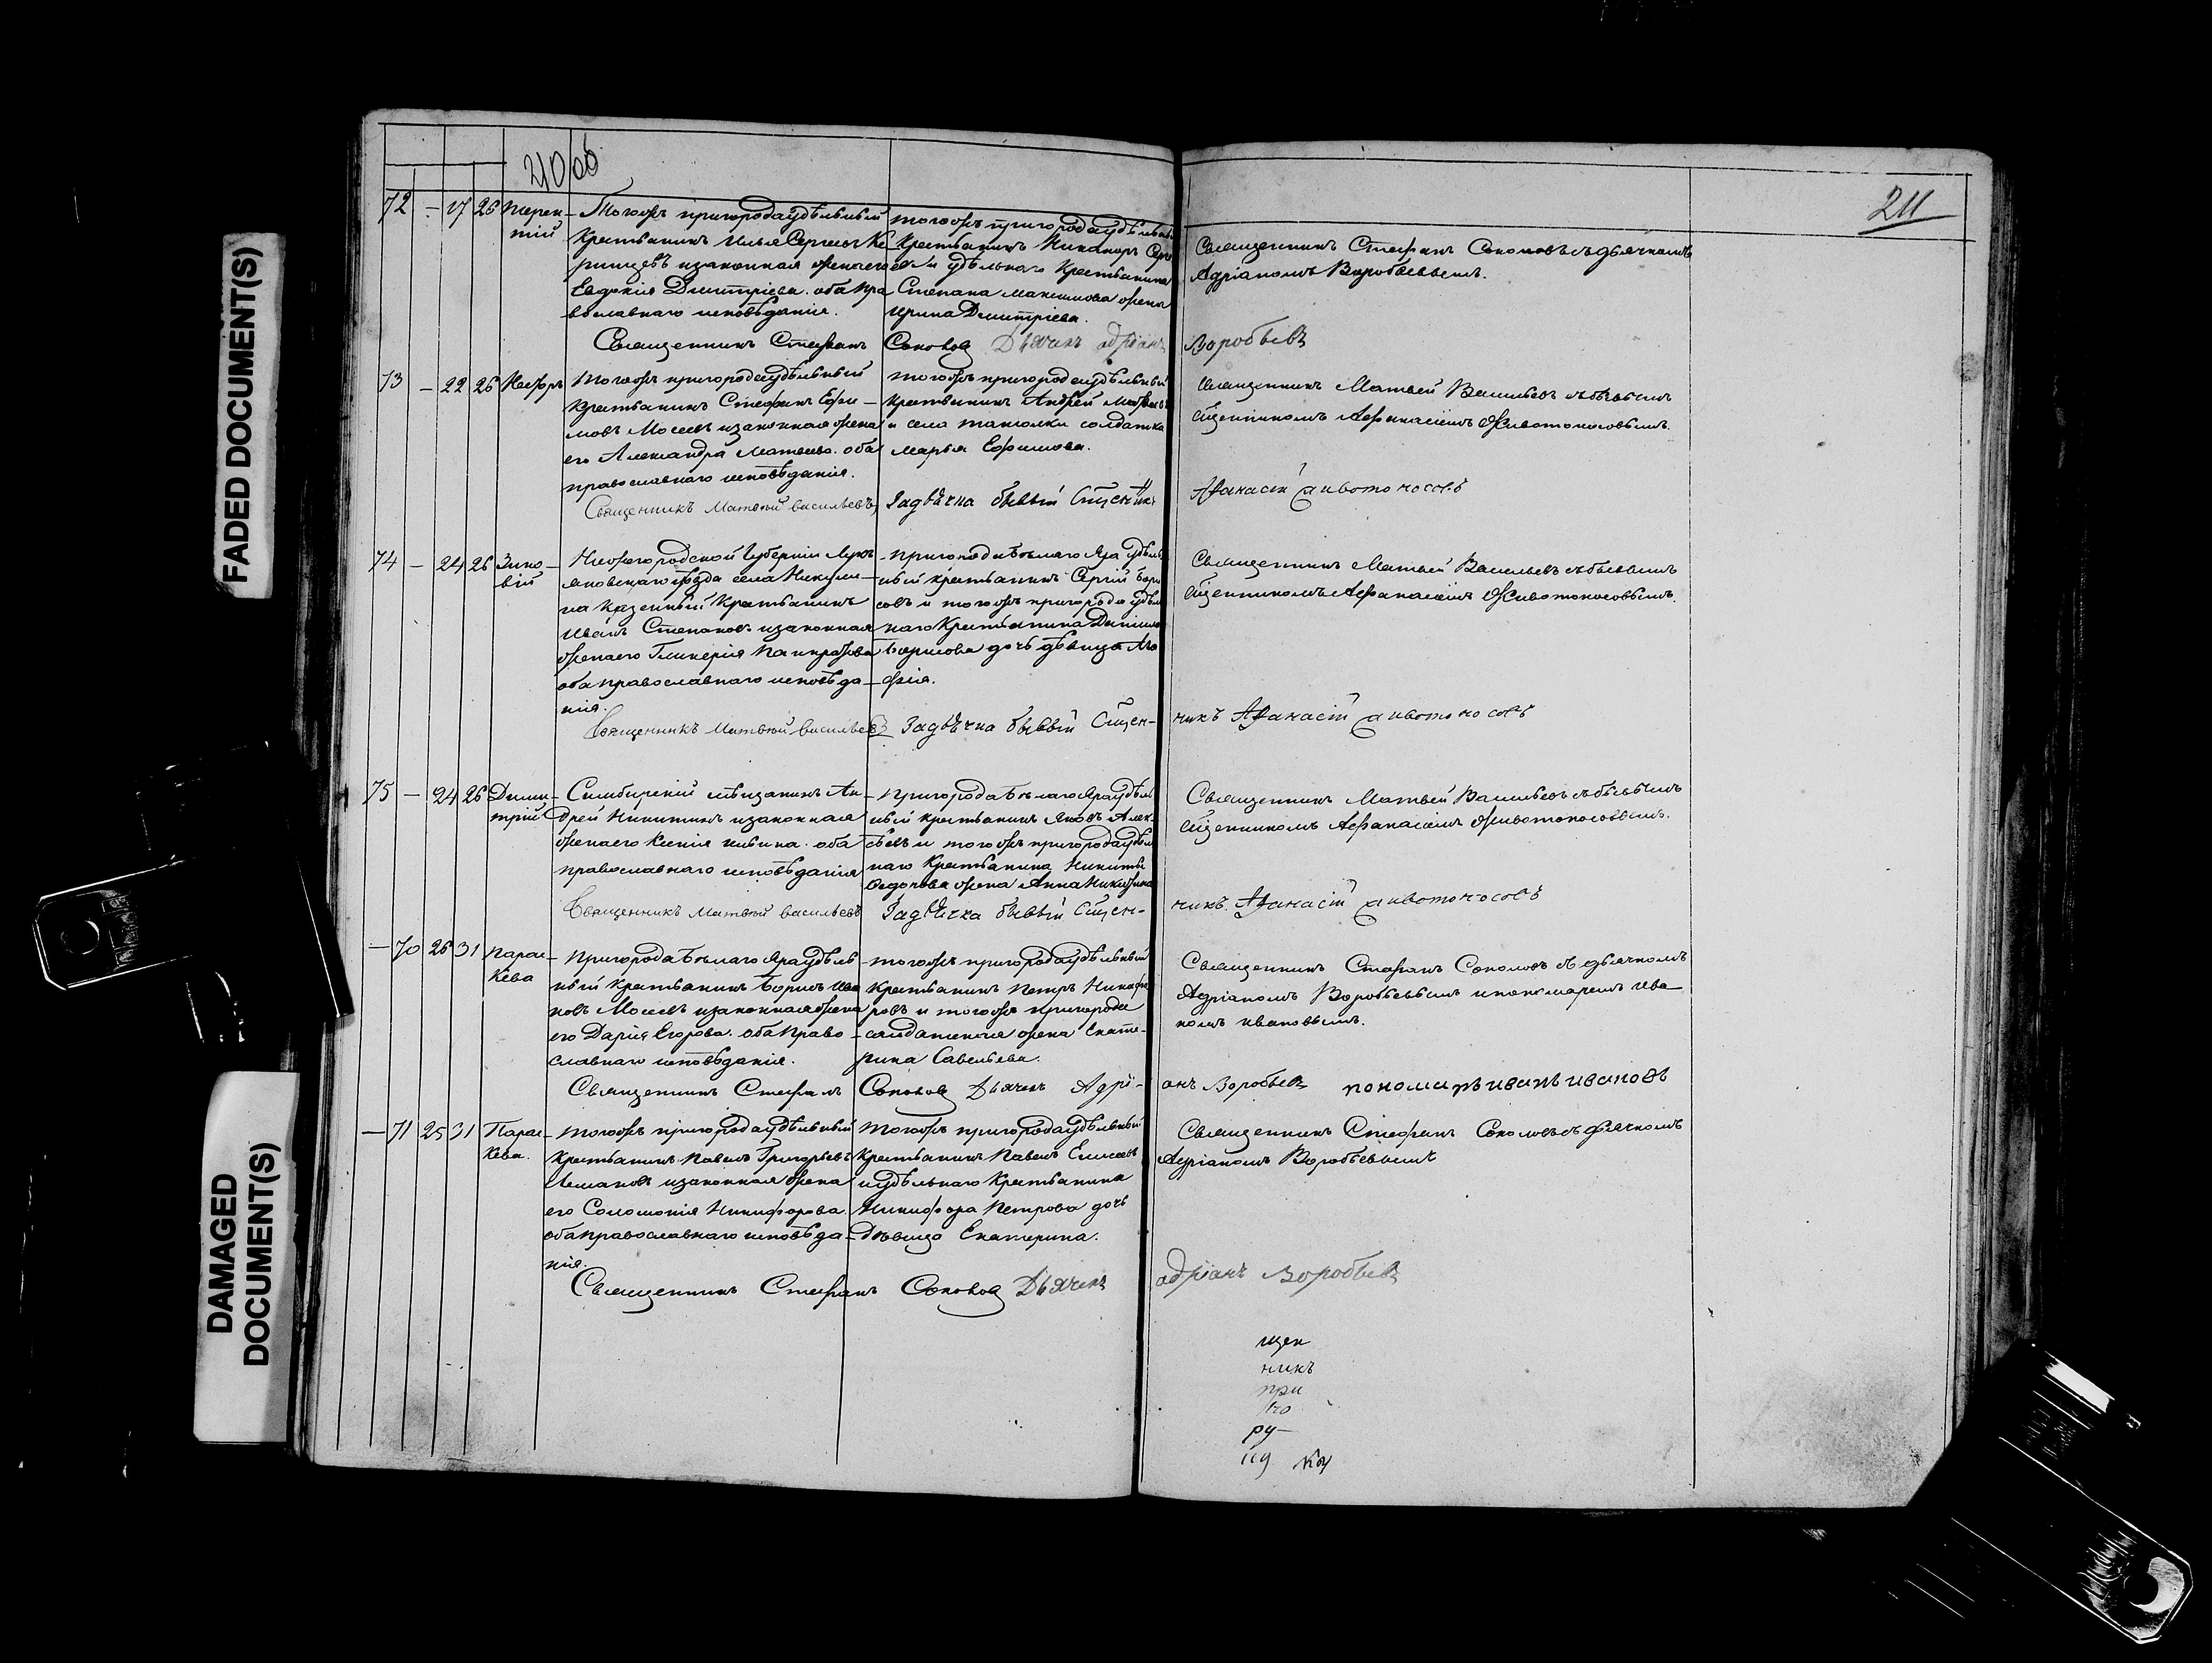 FADED DOCUMENT(S)
DAMAGED
DOCUMENT(S)
210 об
211
72 - 17 26 Терен-
тій
Тогожъ пригорода удѣльный
Крестьянинъ Илья Сергѣевъ Ке-
рищевъ и законная жена его
Евдокія Дмитріева. оба пра
вославнаго исповѣданія.
тогожъ пригорода удѣльный
Крестьянинъ Никаноръ Серге
евъ и удѣльнаго Крестьянина
Степана Максимова жена
Ирина Дмитріева.
Священникъ Стефанъ Соколовъ съ дьячкомъ
Адріаномъ Воробьевымъ.
Священникъ Стефанъ Соколов Дьячекъ адріанъ Воробьевъ
73 - 22 26
Тогожъ пригорода удѣльный
Крестьянинъ Стефанъ Ефи-
мовъ Мосеевъ и законная жена
его Александра Матвѣева. оба
православнаго исповѣданія.
тогожъ пригорода удѣльный
крестьянинъ Андрей
и села солдатка
Марья Ефимова.
Священникъ Матвей Васильевъ съ бывшимъ
Сщенникомъ Афанасіемъ Животоносовымъ.
Священникъ Матвѣй Васильевъ Задьячка бывый Сщенникъ Афанасій Животоносовъ
74 - 24 26 Зино-
вій
Нижегородской Губерніи Луко
яновскаго уѣзда села Никули-
на Казенный Крестьянинъ
Иванъ Степановъ и законная
жена его Гликерія Панкратова
оба православнаго исповѣда-
нія.
Пригорода Бѣлаго Яра удѣль
ный крестьянинъ Сергій Бори
совъ и тогожъ пригорода удѣль
наго Крестьянина Данила
Борисова дочь дѣвица Ага
фія.
Священникъ Матвей Васильевъ съ бывшимъ
Сщенникомъ Афанасіемъ Животоносовымъ.
Священникъ Матвѣй Васильевъ Задьячка бывый Сщен- никъ Афанасій Животоносовъ
75 - 24 26 Димит-
трій
Симбирскій мѣщанинъ Ан-
дрей Никитинъ и законная
жена его Ксенія Ильина. оба
православнаго исповѣданія
Пригорода Бѣлаго Яра удѣль
ный крестьянинъ Яковъ Алек-
сѣевъ и тогожъ пригорода удѣль
наго Крестьянина Никиты
Федорова жена Анна Никифорова
Священникъ Матвей Васильевъ съ бывшимъ
Сщенникомъ Афанасіемъ Животоносовымъ.
Священникъ Матвѣй Васильевъ Задьячка бывый Сщен- никъ. Афанасій Животоносовъ
- 70 26 31 Парас-
кева
Пригорода Бѣлаго Яра удѣль
ный Крестьянинъ Борисъ Ива
новъ Мосеевъ и законная жена
его Дарія Егорова. оба право-
славнаго исповѣданія.
тогожъ пригорода удѣльный
Крестьянинъ Петръ Никифо
ровъ и тогожъ пригорода
солдатская жена Екате-
рина Савельева.
Священникъ Стефанъ Соколовъ съ дьячкомъ
Адріаномъ Воробьевымъ и пономаремъ Ива-
номъ Ивановымъ.
Священникъ Стефанъ Соколов Дьячекъ Адрі- анъ Воробьевъ пономарь иванъ ивановъ
- 71 25 31 Парас-
кева.
Тогожъ пригорода удѣльный
Крестьянинъ Павелъ Григорьевъ
и законная жена
его Соломонія Никифорова.
оба православнаго исповѣда-
нія.
Тогожъ пригорода удѣльный
Крестьянинъ Павелъ Елисеевъ
и удѣльнаго Крестьянина
Никифора Петрова дочь
дѣвица Екатерина.
Священникъ Стефанъ Соколовъ съ дьячкомъ
Адріаномъ Воробьевымъ
Священникъ Стефанъ Соколов Дьячекъ адріанъ Воробьевъ
щен
никъ
при
ру-